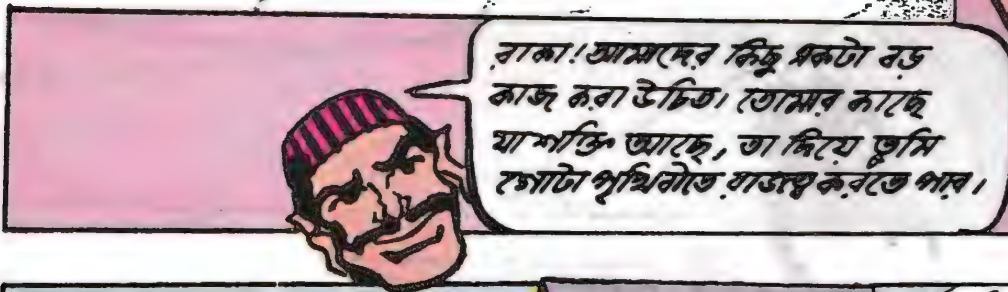 রাকা! আমাদের কিছু একটা বড়
কাজ করা উচিত। তোমার কাছে
যা শক্তি আছে, তা দিয়ে তুমি
গোটা পৃথিবীতে রাজত্ব করতে পার।